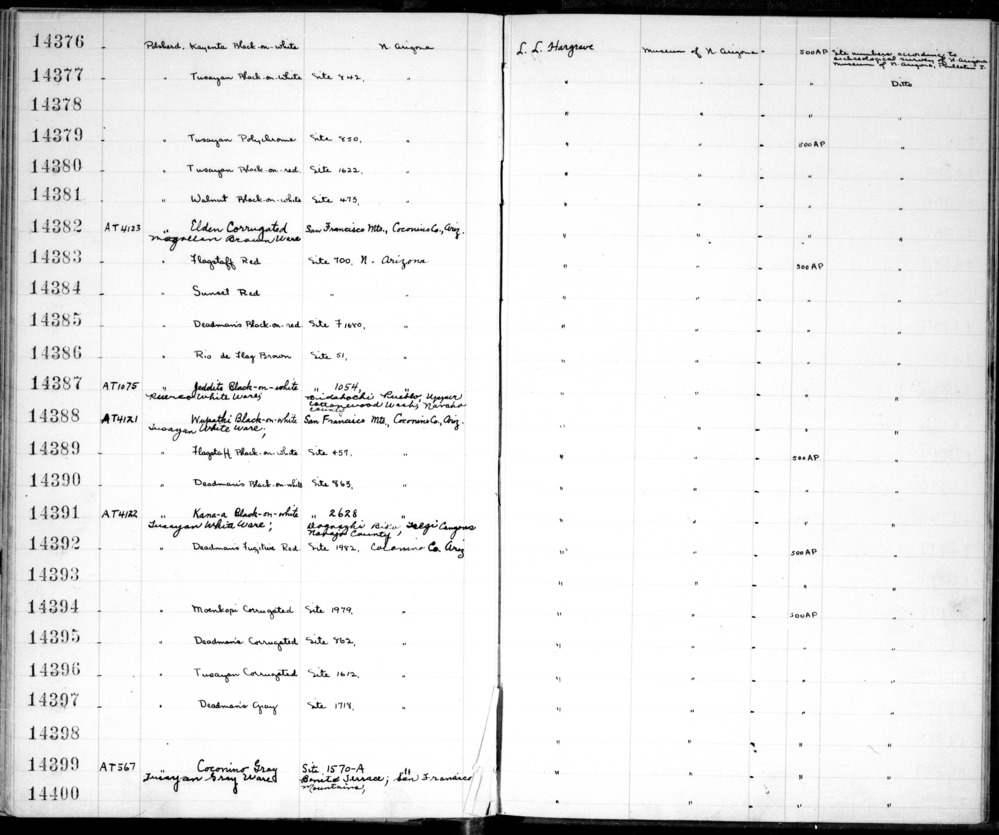 14376 - Potsherd, Kayenta Black-on-white N. Arizona L. L. Hargrave Museum of N. Arizona - 500AP Site numbers according to
archaeological survey of N. Arizona
Museum of N. Arizona, Bulletin I.
14377 - " Tusayan Black-on-white Site 842, " " " - " Ditto
14378 " " - " "
14379 - " Tusayan Polychrome Site 850, " " " - 500AP "
14380 - " Tusayan Black-on-red Site 1622, " " " - " "
14381 - " Walnut Black-on-white Site 473, " " " - " "
14382 AT4123 " Elden Corrugated San Francisco Mts., Coconino Co., Ariz. " " - " "
Mogollon Brown Ware
14383 - " Flagstaff Red Site 700, N. Arizona " " - 500AP "
14384 - " Sunset Red " " " " - " "
14385 - " Deadman's Black-on-red Site 71680, " " " - " "
14386 - " Rio de Flag Brown Site 51, " " " - " "
14387 AT1075 " Jeddito Black-on-white " 1054, " " " - " "
White Ware; Bidahochi Pueblo, Upper
Cottonwood Wash, Navaho
County
14388 AT4121 " Wupatki Black-on-white San Francisco Mts., Coconino Co., Ariz. " " - " "
Tusayan White Ware;
14389 - " Flagstaff Black-on-white Site 457, " " " - 500AP "
14390 - " Deadman's Black-on-white Site 863, " " " - " "
14391 AT4122 " Kana-a Black-on-white " 2628 " " " - " "
Tusayan White Ware; Biko, Tsegi Canyons
Navajo County
14392 - " Deadman's Fugitive Red Site 1982, Coconino Co. Ariz " " - 500AP "
14393 " " - " "
14394 - " Moenkopi Corrugated Site 1979, " " " - 500AP "
14395 - " Deadman's Corrugated Site 862, " " " - " "
14396 - " Tusayan Corrugated Site 1612, " " " - " "
14397 - " Deadman's Gray Site 1718, " " " - " "
14398 " " - " "
14399 AT567 " Coconino Gray Site 1570-A " " " - " "
Tusayan Gray Ware Bonito Terrace; San Francisco
Mountains;
14400 " " - " "